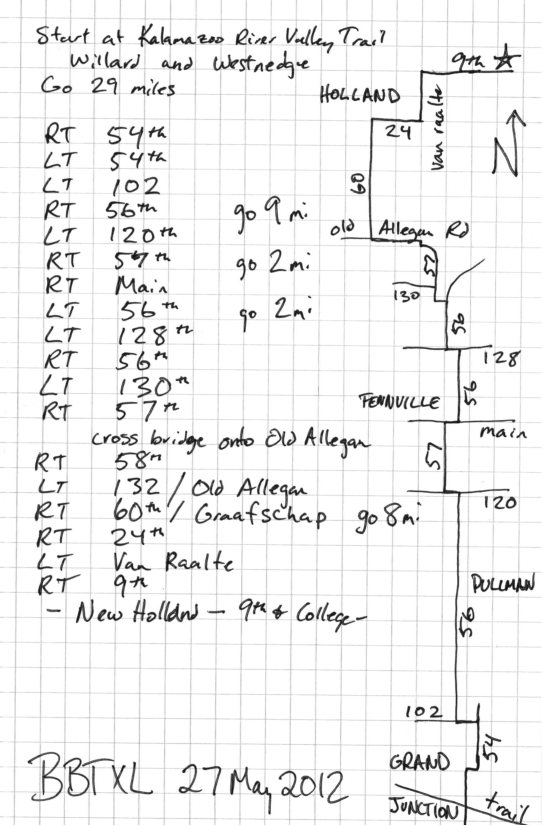 Start at Kalamazoo River Valley Trail
Willard and Westnedge
Go 29 miles
RT 54th
LT 54th
LT 102
RT 56th go 9 mi
LT 120th
RT 57th go 2 mi
RT Main
LT 56th go 2 mi
LT 128th
RT 56th
LT 130th
RT 57th
cross bridge onto Old Allegan
RT 58th
LT 132 / Old Allegan
RT 60th / Graafschap go 8 mi
RT 24th
LT Van Raalte
RT 9th
- New Holland - 9th & College -
BBTXL 27 May 2012
9th
HOLLAND
van raalte
24
60
N
old Allegan Rd
57
130
56
128
56
FENNVILLE
main
57
120
PULLMAN
56
102
54
GRAND
JUNCTION
trail